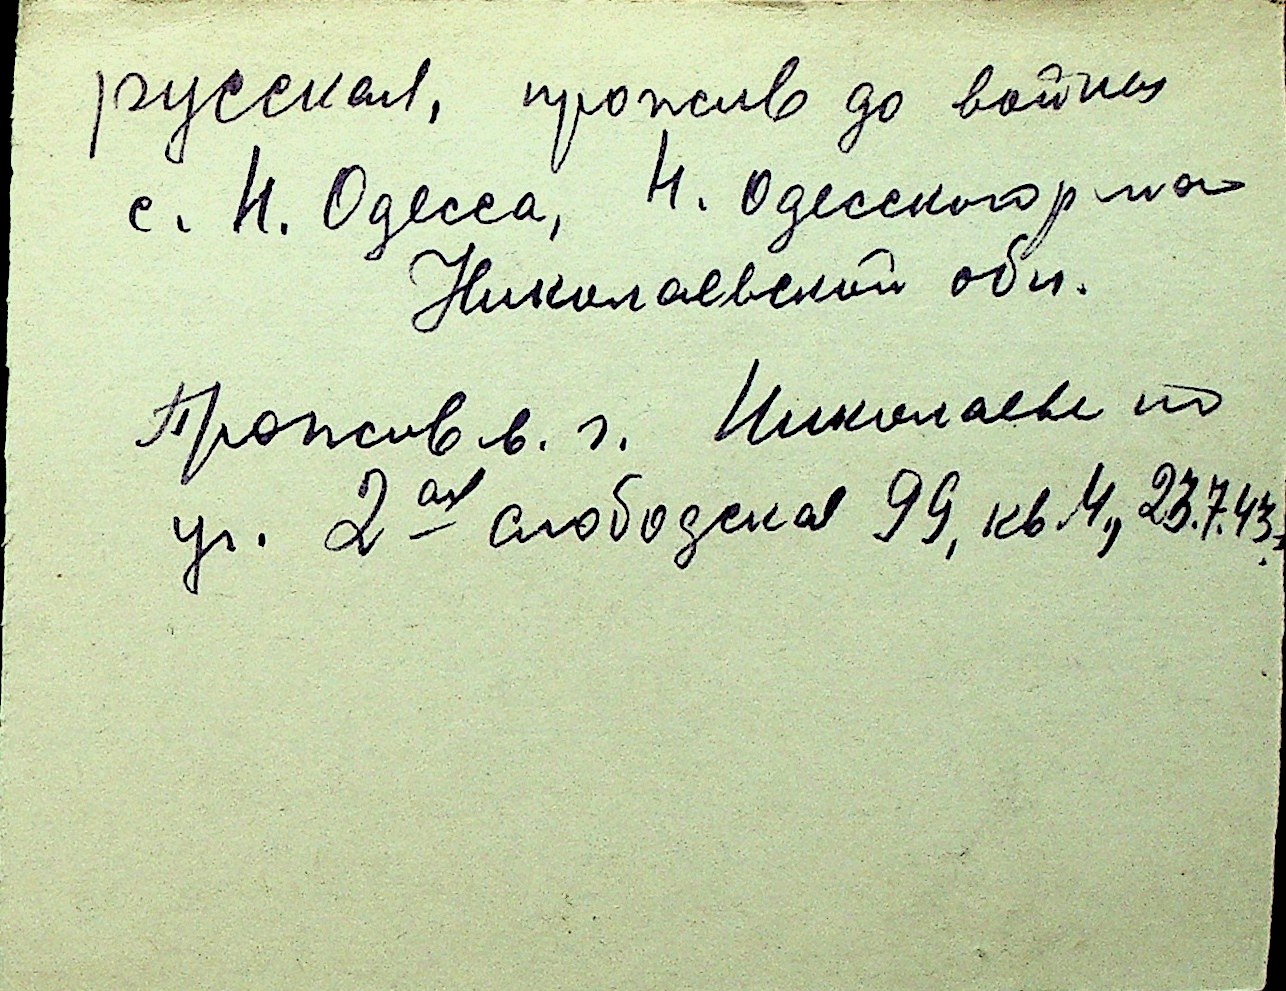 русская, прожив до войны
с. Н. Одесса, Н. Одесского р-на
Николаевской обл.
Прожив в. г. Николаеве по
ул. 2ая слободская 99, кв 4, 23.7.43.